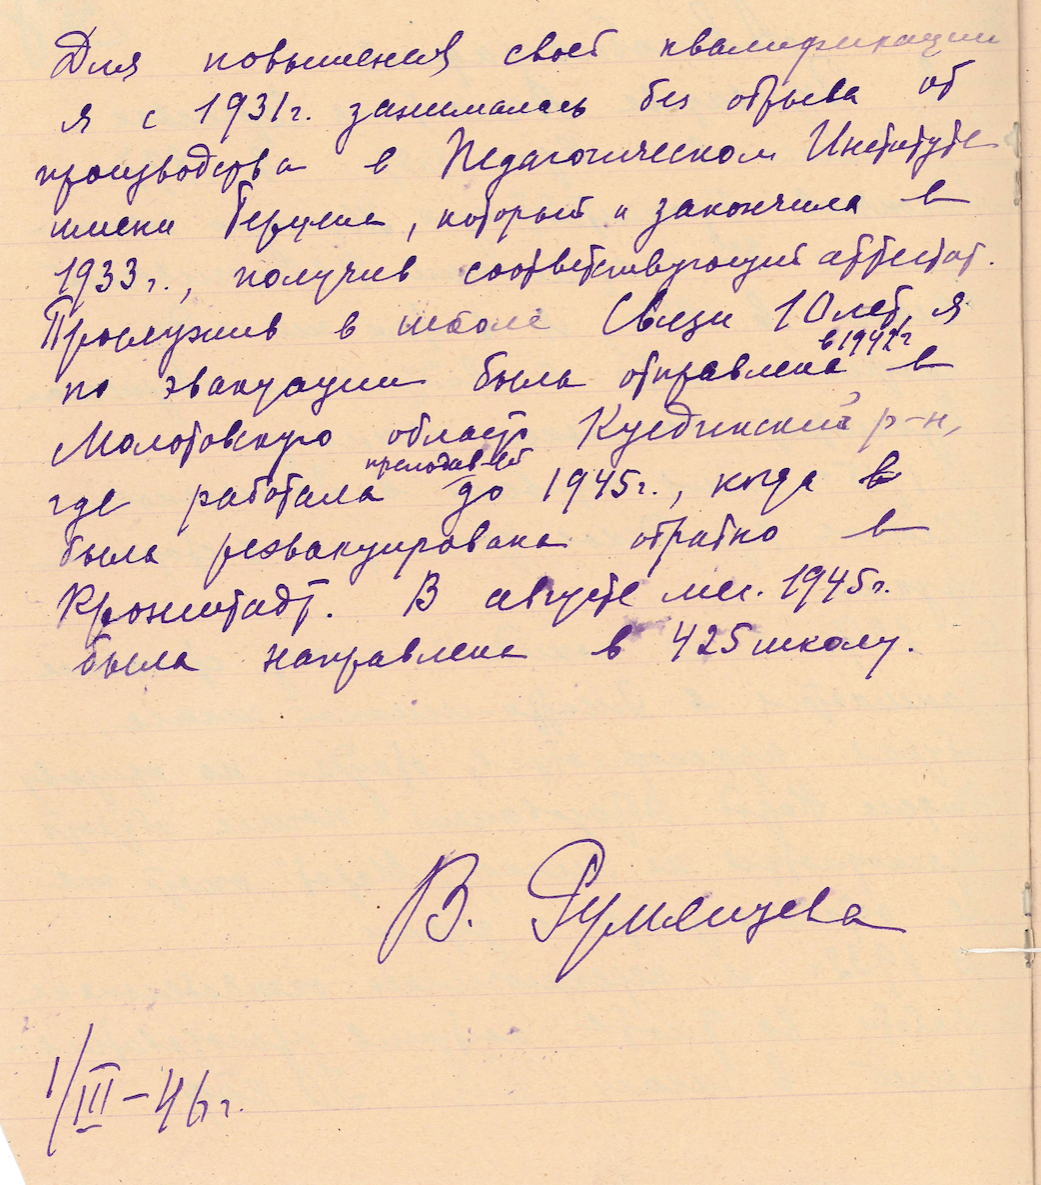 Для повышения своей квалификации
я с 1931г. занималась без отрыва от
производства в Педагогическом Институте
имени Герцена, который и закончила в
1933г., получив соответствующий аттестат.
Прослужив в школе Связи 10 лет, я
по эвакуации была отправлена в 1942г в
Молотовскую область Куединский р-н,
где работала преподав-ей до 1945г., когда
была реэвакуирована обратно в
Кронштадт. В августе мес. 1945г.
была направлена в 425 школу.
В. Румянцева
1/III-46г.